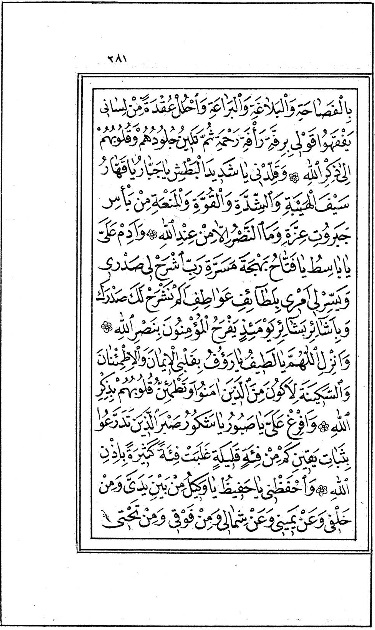 ٢٨١
بِالْفَصَاحَةِ وَالْبَلَاغَةِ وَالْبَرَاعَةِ وَاحْلُلْ عُقْدَةً مِنْ لِسَانِي
يَفْقَهُوا قَوْلِي بِرِقَّةِ رَأْفَةِ رَحْمَةِ ثُمَّ تَلِينُ جُلُودُهُمْ وَقُلُوبُهُمْ
اِلَى ذِكْرِ اللهِ وَقَلِّدْنِي يَا شَدِيدَ الْبَطْشِ يَا جَبَّارُ يَا قَهَّارُ
سَيْفَ الْهَيْبَةِ وَالشِّدَّةِ وَالْقُوَّةِ وَالْمَنْعَةِ مِنْ بَأْسِ
جَبَرُوتِ عِزَّةِ وَمَا النَّصْرُ اِلَّا مِنْ عِنْدِ اللهِ وَاَدِمْ عَلَيَّ
يَا بَاسِطُ يَا فَتَّاحُ بَهْجَةَ مَسَرَّةِ رَبِّ اشْرَحْ لِي صَدْرِي
وَيَسِّرْ لِي اَمْرِي بِلَطَائِفِ عَوَاطِفِ اَلَمْ نَشْرَحْ لَكَ صَدْرَكَ
وَبِاَشَائِرِ بَشَائِرِ يَوْمَئِذٍ يَفْرَحُ الْمُؤْمِنُونَ بِنَصْرِ اللهِ
وَاَنْزِلِ اللّٰهُمَّ يَا لَطِيفُ يَا رَؤُفُ بِقَلْبِي الْاِيمَانَ وَالْاِطْمِئْنَانَ
وَالسَّكِينَةَ لِاَكُونَ مِنَ الَّذِينَ اٰمَنُوا وَتَطْمَئِنُّ قُلُوبُهُمْ بِذِكْرِ
اللهِ وَاَفْرِغْ عَلَيَّ يَا صَبُورُ يَا شَكُورُ صَبْرَ الَّذِينَ تَدَرَّعُوا
بِثَبَاتِ يَقِينِ كَمْ مِنْ فِئَةٍ قَلِيلَةٍ غَلَبَتْ فِئَةً كَثِيرَةً بِاِذْنِ
اللهِ وَاحْفَظْنِي يَا حَفِيظُ يَا وَكِيلُ مِنْ بَيْنِ يَدَيَّ وَمِنْ
خَلْفِي وَعَنْ يَمِينِي وَعَنْ شِمَالِي وَمِنْ فَوْقِي وَمِنْ تَحْتِي